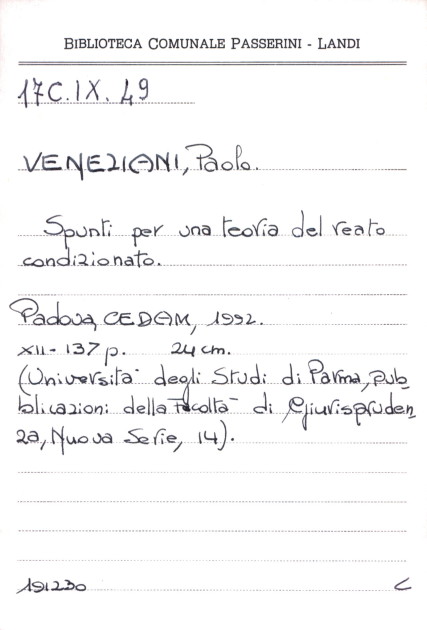 BIBLIOTECA COMUNALE PASSERINI - LANDI
17C.IX.49
VENEZIANI, Paolo.
Spunti per una teoria del reato
condizionato.
Padova, CEDAM, 1992.
XII-137 p. 24 cm.
(Università degli Studi di Parma, pub_
blicazioni della Facoltà di Giurispruden_
za, Nuova Serie, 14).
191230 C